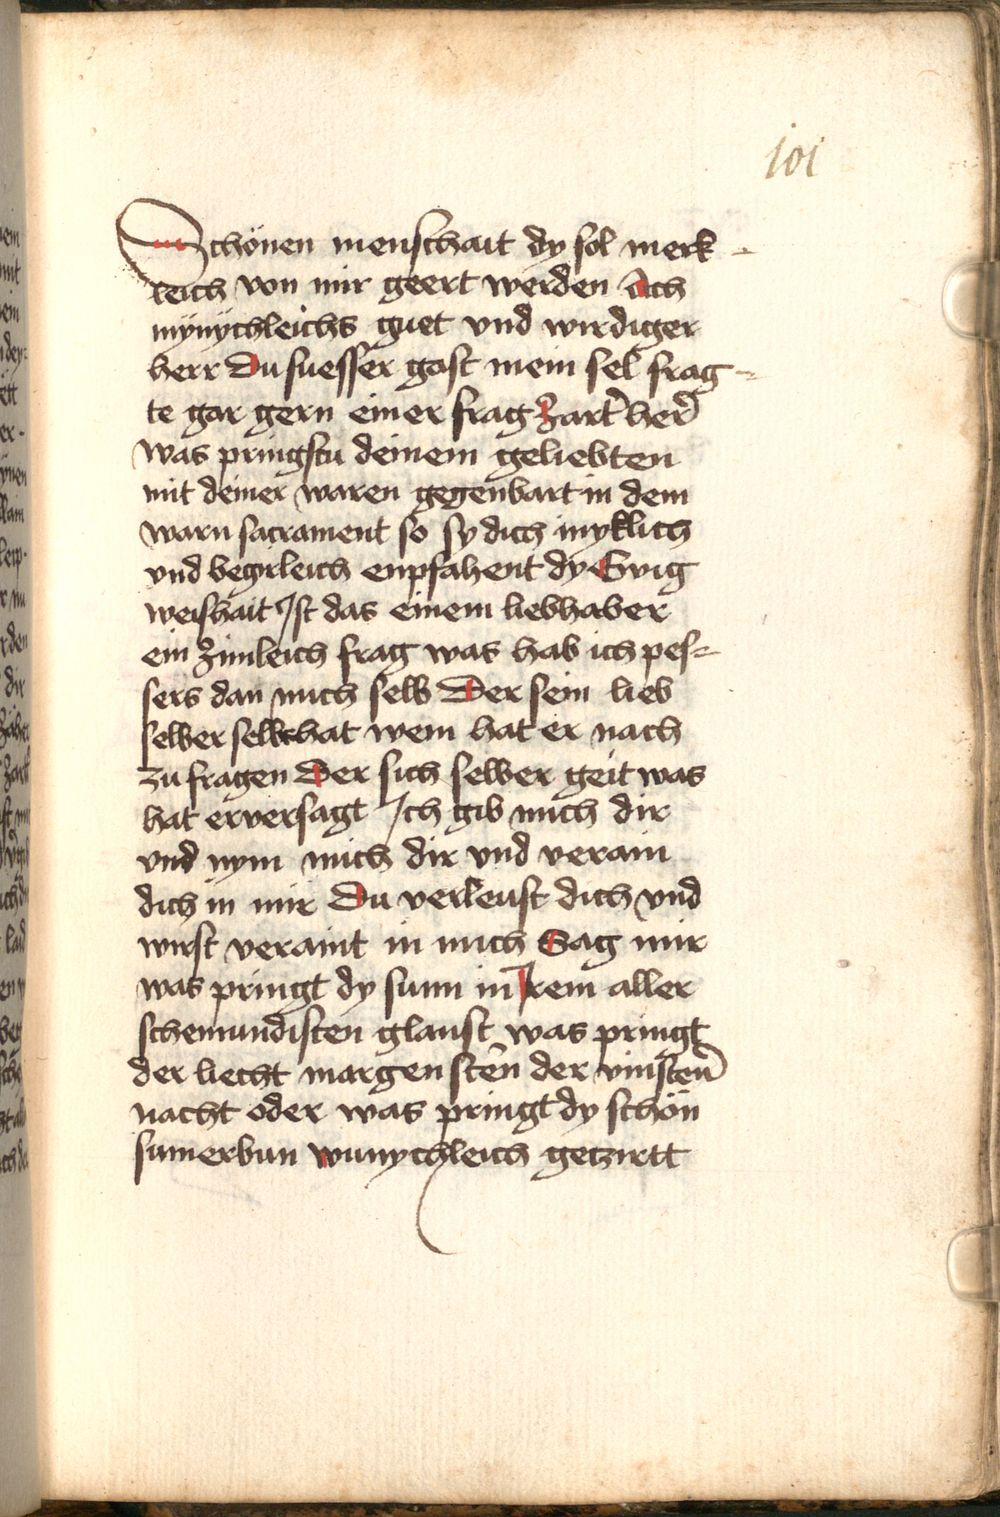 101
Schönen menschait dy sol merk-
leich von mir geert werden Ach
mynychleichs guet vnd wirdiger
herr Du suesser gast mein sel frag-
te gar gern einer frag Zarter herr
was pringstu deinem geliebten
mit deiner waren gegenbart in dem
warn sacrament so sy dich inyklich
vnd begirleich enpfahent dy Ewig
weishait Ist das einem liebhaber
ein zimleich frag was hab ich pes-
sers dan mich selb Der sein lieb
selber selb hat wem hat er nach
zu fragen Der sich selber geit was
hat er versagt Ich gib mich dir
vnd nym mich dir vnd verain
dich in mir Du verleust dich vnd
wirst veraint in mich Sag mir
was pringt dy sunn in Irem aller
schemundisten glanst was pringt
der liecht margen stern der vinstern
nacht oder was pringt dy schön
sumerbun wunychleich getzirtt